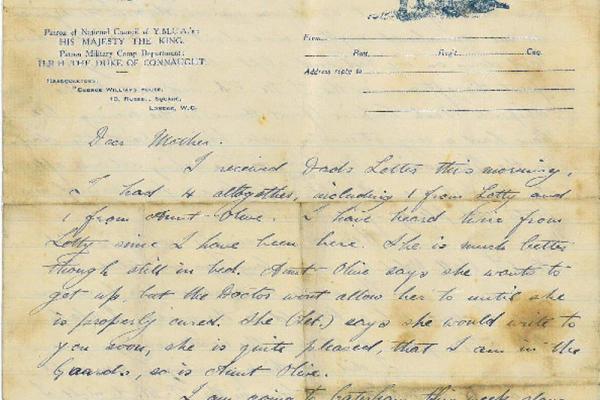 Patron of National Council of Y.M.C.A.'s:
HIS MAJESTY THE KING.
Patron Military Camp Department:
H.R.H. THE DUKE OF CONNAUGHT.
HEADQUARTERS:
"GEORGE WILLIAMS HOUSE,
13, RUSSELL SQUARE,
LONDON, W.C.
From
Batt. Regt. Coy.
Address reply to
Dear Mother.
I received Dads Letter this morning.
I had 4 altogether, including 1 from Lotty and
1 from Aunt Olive. I have heard twice from
Lotty since I have been here. She is much better
though still in bed. Aunt Olive says she wants to
get up, but the Doctor wont allow her to until she
is properly cured. She (Lot.) says she would write to
you soon, she is quite pleased, that I am in the
Guards, so is Aunt Olive.
I am going to Caterham this week